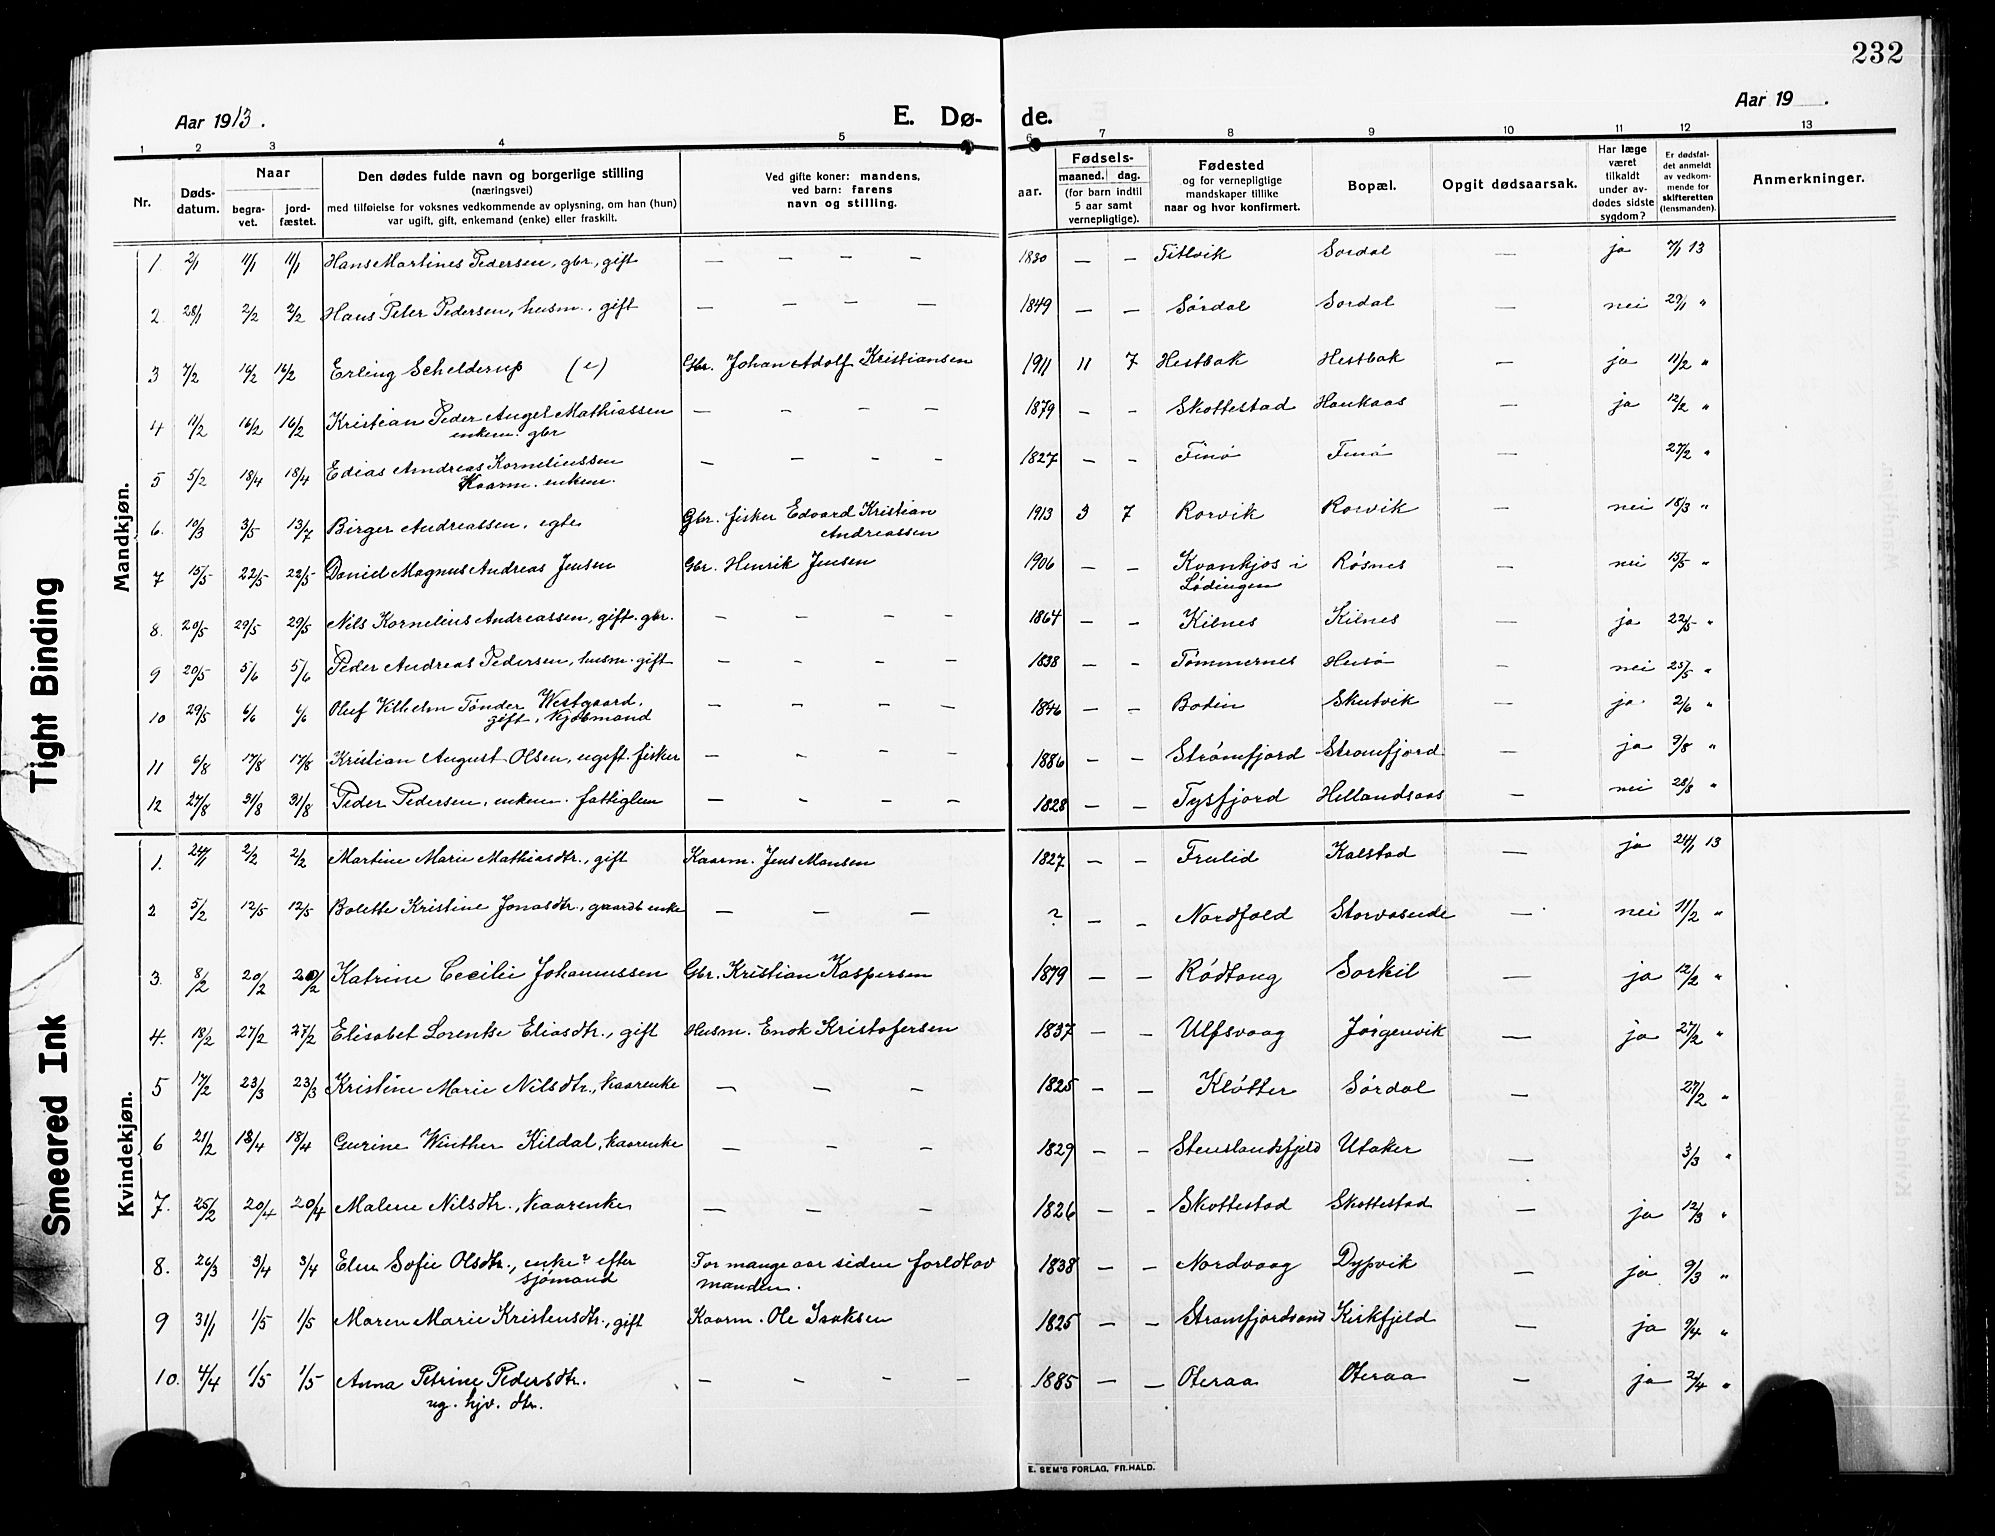 232
Aar 1913.
E. Dø- de.
Aar 19 .
1 2 3 4 5 6 7 8 9 10 11 12 13
Nr.
Døds-
datum.
Naar
begra-
vet.
jord-
fæstet.
Den dødes fulde navn og borgerlige stilling
(næringsvei)
med tilføielse for voksnes vedkommende av oplysning, om han (hun)
var ugift, gift, enkemand (enke) eller fraskilt.
Ved gifte koner: mandens,
ved barn: farens
navn og stilling.
Fødsels-
aar. maaned. dag.
(for barn indtil
5 aar samt
vernepligtige).
Fødested
og for vernepligtige
mandskaper tillike
naar og hvor konfirmert.
Bopæl.
Opgit dødsaarsak.
Har læge
været
tilkaldt
under av-
dødes sidste
sygdom?
Er dødsfal-
det anmeldt
av vedkom-
mende for
skifteretten
(lensmanden).
Anmerkninger.
Mandkjøn.
1. 2/1 11/1 11/1 Hans Martines Pedersen, gbr., gift — — — — 1830 — — Titlvik Sørdal — ja 7/1 13
2. 28/1 2/2 2/2 Hans Peter Pedersen, husm., gift — — — — 1849 — — Sørdal Sørdal — nei 29/1 "
3 7/2 16/2 16/2 Erling Schelderup (e) Gbr. Johan Adolf Kristiansen 1911 11 7 Hestbak Hestbak — ja 11/2 "
4 11/2 16/2 16/2 Kristian Peder Angel Mathiassen — — — — 1879 — — Skottestad Haukaas — ja 12/2 "
enkem. gbr
5 5/2 18/4 18/4 Edias Andreas Korneliussen — — — — 1827 — — Finø Finø — 27/2 "
Kaarm. enkem.
6. 10/3 3/5 13/7 Birger Andreassen, egte Gbr. fisker Edvard Kristian 1913 3 7 Rorvik Rorvik — nei 18/3 "
Andreassen
7 15/5 22/5 22/5 Daniel Magnus Andreas Jensen Gbr. Henrik Jensen 1906 — — Kvankjos i Røsnes — nei 15/5 "
Lødingen
8. 20/5 29/5 29/5 Nils Kornelius Andreassen, gift. gbr. — — — — 1864 — — Kilnes Kilnes — ja 22/5 "
9 20/5 5/6 5/6 Peder Andreas Pedersen, husm. gift — — — — 1838 — — Tømmernes Husø — nei 25/5 "
10 29/5 6/6 6/6 Oluf Vilhelm Tønder Westgaard, — — — — 1846 — — Bodin Skutvik — ja. 2/6 "
gift, Kjøbmand
11 6/8 17/8 17/8 Kristian August Olsen, ugift. fisker — — — — 1886 — — Strømfjord Strømfjord — ja 9/8 "
12 27/8 31/8 31/8 Peder Pedersen, enkem. fattiglem — — — — 1828 — — Tysfjord Hellandsaas — nei 28/8 "
Kvindekjøn.
1. 24/1 2/2 2/2 Martine Marie Mathiasdtr., gift Kaarm. Jens Mansen 1827 — — Frulid Kalstad — ja 24/1 13
2 5/2 12/5 12/5 Bolette Kristine Jonasdtr., gaardb. enke — — — ? — — Nordfold Storvaseide — nei 11/2 "
3. 8/2 20/2 20/2 Katrine Cecilie Johannessen Gbr. Kristian Kaspersen 1879 — — Rødtang Sorkil — ja 12/2 "
4. 18/2 27/2 27/2 Elisabet Lorentse Eliasdtr., gift Husm. Enok Kristofersen 1837 — — Ulfsvaag Jørgenvik — ja 27/2 "
5 17/2 23/3 23/3 Kristine Marie Nilsdtr., kaarenke — — — 1825 — — Kløtter Sørdal — 27/2 "
6 21/2 18/4 18/4 Gurine Winther Kildal, kaarenke — — — 1829 — — Stenslandsfjeld Utaker — 3/3 "
7. 25/2 20/4 20/4 Malene Nilsdtr., kaarenke — — — 1826 — — Skottestad Skottestad — ja 12/3 "
8. 26/3 3/4 3/4 Elen Sofie Olsdtr., enke? efter For mange aar siden forldt av 1838 — — Nordvaag Dypvik — ja 9/3 "
sjømand manden.
9 31/1 1/5 1/5 Maren Marie Kristensdtr., gift Kaarm. Ole Isaksen 1825 — — Strømfjordsand Kirkfjeld — ja 9/4 "
10. 4/4 1/5 1/5 Anna Petrine Pedersdtr. — — — — 1885 — — Oteraa Oteraa — ja 2/4 "
ug. hjv. dtr.
E. SEM'S FORLAG, FR.HALD.
Tight Binding
Smeared Ink